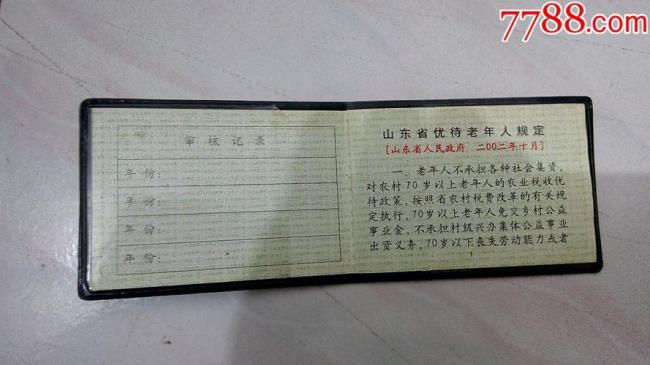 7788.com
审核记录
年份:
年份:
年份:
年份:
山东省优待老年人规定
[山东省人民政府 二00二年十月]
一、老年人不承担各种社会集资。
对农村70岁以上老年人的农业税收优
待政策,按照省农村税费改革的有关规
定执行,70岁以上老年人免交乡村公益
事业金,不承担村级兴办集体公益事业
出资义务。70岁以下丧失劳动能力或者
1